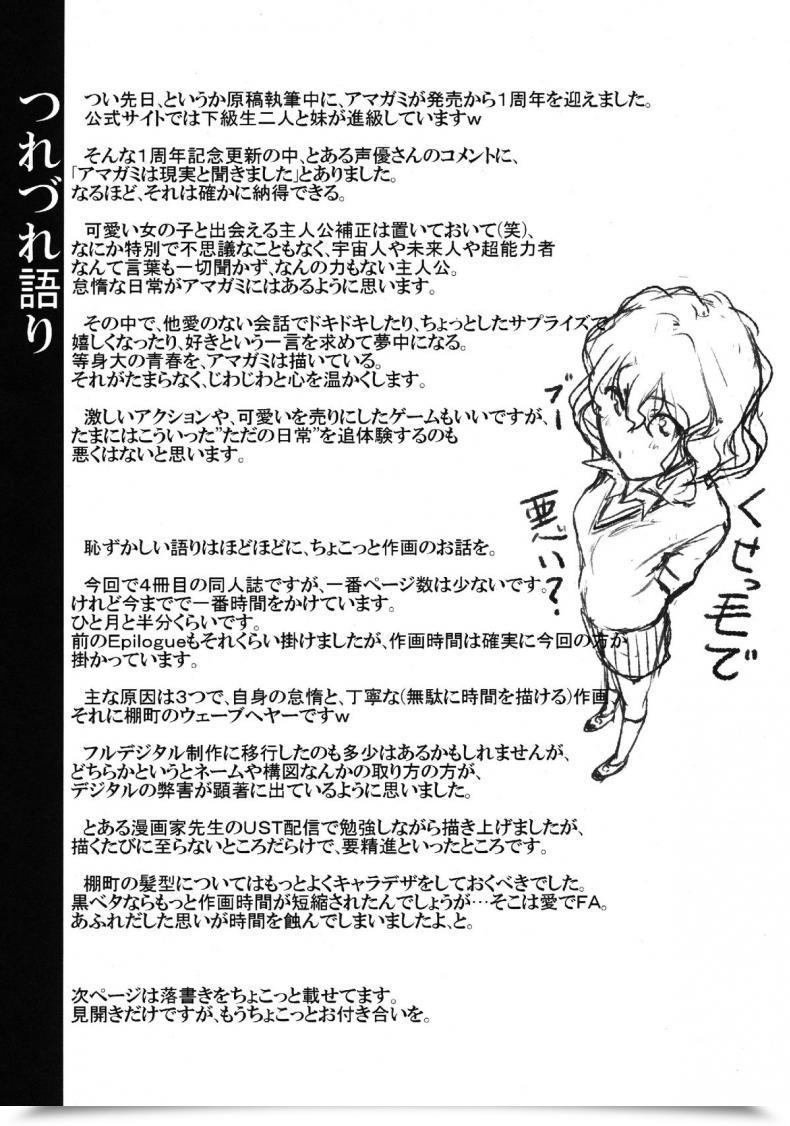 つれづれ語り
つい先日、というか原稿執筆中に、アマガミが発売から1周年を迎えました。
公式サイトでは下級生二人と妹が進級していますw
そんな1周年記念更新の中、とある声優さんのコメントに、
「アマガミは現実と聞きました」とありました。
なるほど、それは確かに納得できる。
可愛い女の子と出会える主人公補正は置いておいて(笑)、
なにか特別で不思議なこともなく、宇宙人や未来人や超能力者
なんて言葉も一切聞かず、なんの力もない主人公。
怠惰な日常がアマガミにはあるように思います。
その中で、他愛のない会話でドキドキしたり、ちょっとしたサプライズで
嬉しくなったり、好きという一言を求めて夢中になる。
等身大の青春を、アマガミは描いている。
それがたまらなく、じわじわと心を温かくします。
激しいアクションや、可愛いを売りにしたゲームもいいですが、
たまにはこういった”ただの日常”を追体験するのも
悪くはないと思います。
ブー
くせっ毛で
悪い?
恥ずかしい語りはほどほどに、ちょこっと作画のお話を。
今回で4冊目の同人誌ですが、一番ページ数は少ないです。
けれど今までで一番時間をかけています。
ひと月と半分くらいです。
前のEpilogueもそれくらい掛けましたが、作画時間は確実に今回の方が
掛かっています。
主な原因は3つで、自身の怠惰と、丁寧な(無駄に時間を掛ける)作画、
それに棚町のウェーブヘヤーですw
フルデジタル制作に移行したのも多少はあるかもしれませんが、
どちらかというとネームや構図なんかの取り方の方が、
デジタルの弊害が顕著に出ているように思いました。
とある漫画家先生のUST配信で勉強しながら描き上げましたが、
描くたびに至らないところだらけで、要精進といったところです。
棚町の髪型についてはもっとよくキャラデザをしておくべきでした。
黒ベタならもっと作画時間が短縮されたんでしょうが…そこは愛でFA。
あふれだした思いが時間を蝕んでしまいましたよ、と。
次ページは落書きをちょこっと載せてます。
見開きだけですが、もうちょこっとお付き合いを。